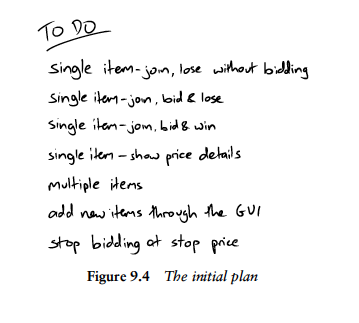 TO DO
single item-join, lose without bidding
single item-join, bid & lose
single item-join, bid & win
single item - show price details
multiple items
add new items through the GUI
stop bidding at stop price
Figure 9.4 The initial plan